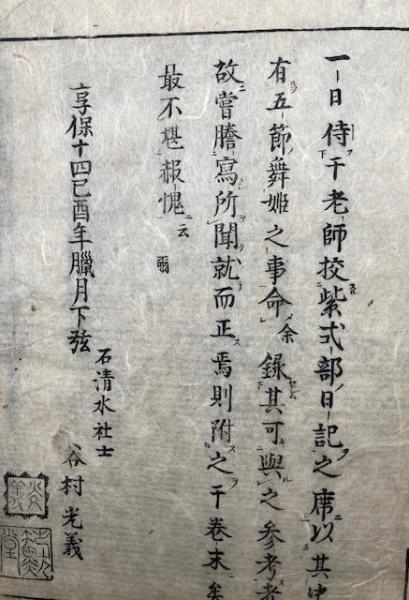 一日侍于老師挍紫式部日記之席以其中
有五節舞姬之事命余錄其可與之參考者
故嘗謄寫所聞就而正焉則附之于卷末矣
最不堪赧愧云爾
享保十四己酉年臘月下弦
石清水社士
谷村光義
光義